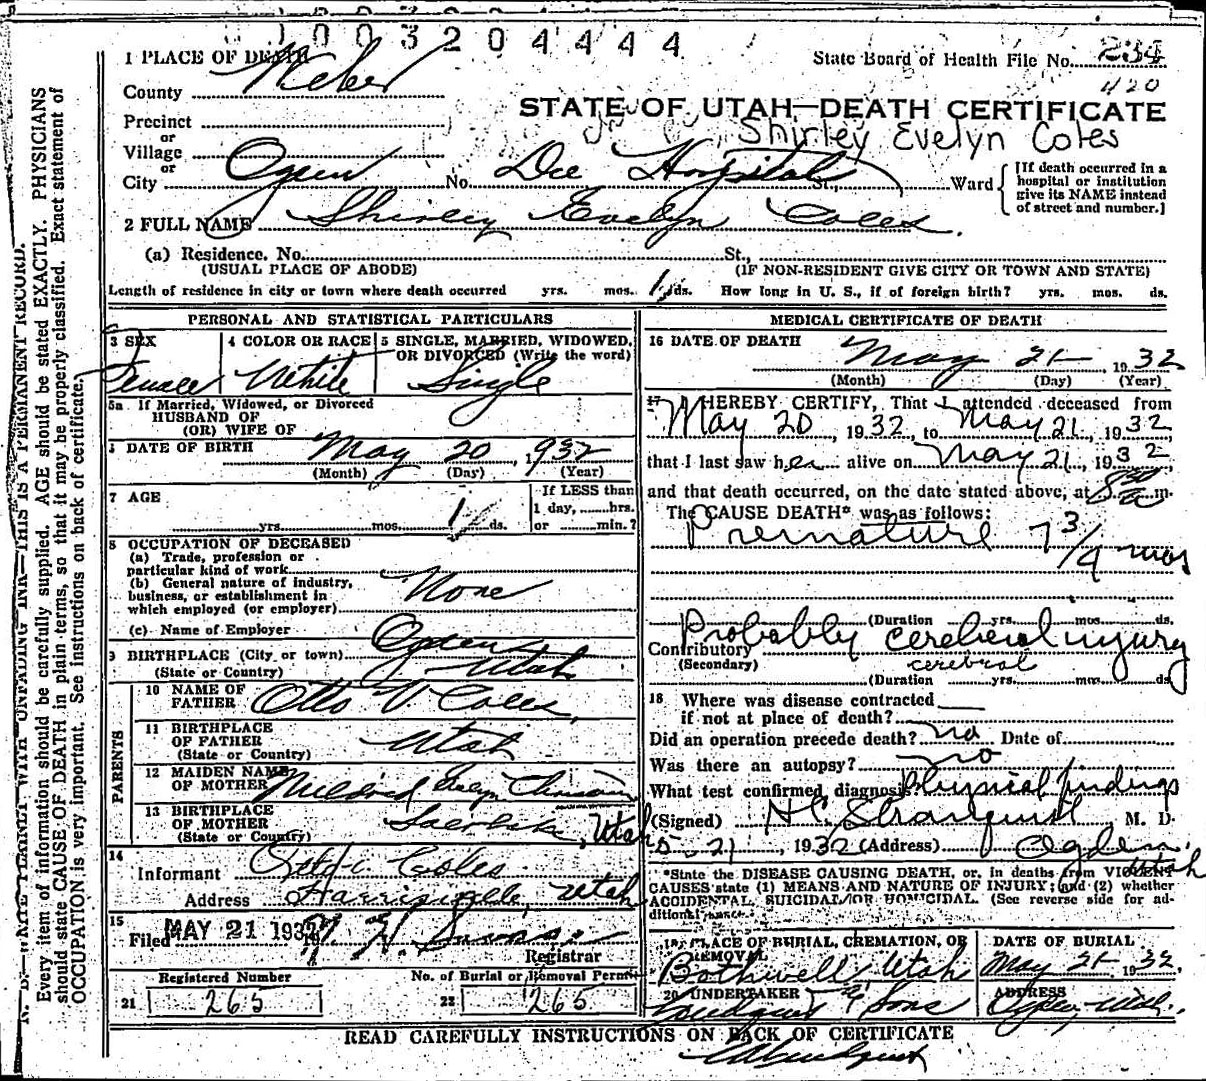 1003204444
1 PLACE OF DEATH
State Board of Health File No. 234
420
County Weber
STATE OF UTAH—DEATH CERTIFICATE
Precinct
or
Shirley Evelyn Coles
Village
or
City Ogden No. Dee Hospital St., Ward
[If death occurred in a
hospital or institution
give its NAME instead
of street and number.]
2 FULL NAME Shirley Evelyn Coles.
(a) Residence. No. St.,
(USUAL PLACE OF ABODE) (IF NON-RESIDENT GIVE CITY OR TOWN AND STATE)
Length of residence in city or town where death occurred yrs. mos. 1 ds. How long in U. S., if of foreign birth? yrs. mos. ds.
PERSONAL AND STATISTICAL PARTICULARS
3 SEX 4 COLOR OR RACE 5 SINGLE, MARRIED, WIDOWED,
OR DIVORCED (Write the word)
Female White Single
5a If Married, Widowed, or Divorced
HUSBAND OF
(OR) WIFE OF
DATE OF BIRTH May 20 1932
(Month) (Day) (Year)
7 AGE
yrs. mos. 1 ds.
If LESS than
1 day, hrs.
or min.?
8 OCCUPATION OF DECEASED
(a) Trade, profession or
particular kind of work
(b) General nature of industry,
business, or establishment in
which employed (or employer)
None
(c) Name of Employer
9 BIRTHPLACE (City or town) Ogden
(State or Country) Utah
PARENTS
10 NAME OF
FATHER Otto V. Coles,
11 BIRTHPLACE
OF FATHER
(State or Country) Utah
12 MAIDEN NAME
OF MOTHER Mildred Evelyn
13 BIRTHPLACE
OF MOTHER
(State or Country) , Utah
14
Informant Coles
Address Harrisville, Utah
15
Filed MAY 21 1932
Registrar
Registered Number No. of Burial or Removal Permit
21 265 22 265
MEDICAL CERTIFICATE OF DEATH
16 DATE OF DEATH May 21 1932
(Month) (Day) (Year)
17 I HEREBY CERTIFY, That I attended deceased from
May 20, 1932, to May 21, 1932
that I last saw her alive on May 21, 1932
and that death occurred, on the date stated above, at 8 30 a m.
The CAUSE DEATH* was as follows:
Premature 7 3/4 mos
(Duration yrs. mos. ds.
Contributory Probably cerebral injury
(Secondary) cerebral
(Duration yrs. mos. ds.
18 Where was disease contracted
if not at place of death?
Did an operation precede death? no Date of
Was there an autopsy? no
What test confirmed diagnosis? Physical findings
(Signed) H C Stranquist, M. D.
5-21, 1932 (Address) Ogden,
Utah
*State the DISEASE CAUSING DEATH, or, in deaths from VIOLENT
CAUSES state (1) MEANS AND NATURE OF INJURY; and (2) whether
ACCIDENTAL, SUICIDAL, OR HOMICIDAL. (See reverse side for ad-
ditional space.)
19 PLACE OF BURIAL, CREMATION, OR
REMOVAL
DATE OF BURIAL
Bothwell, Utah May 21 1932
20 UNDERTAKER ADDRESS
& Sons Ogden, Utah.
READ CAREFULLY INSTRUCTIONS ON BACK OF CERTIFICATE
N. B.—WRITE PLAINLY WITH UNFADING INK—THIS IS A PERMANENT RECORD.
Every item of information should be carefully supplied. AGE should be stated EXACTLY. PHYSICIANS
should state CAUSE OF DEATH in plain terms, so that it may be properly classified. Exact statement of
OCCUPATION is very important. See instructions on back of certificate.